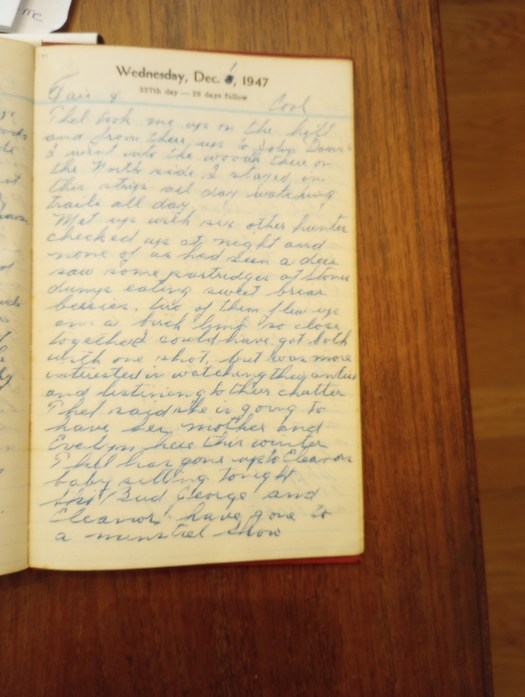 mc
Wednesday, Dec. 3, 1947
337th day — 28 days follow
Fair & Cool
Phel took me up on the hill
and from there up to John Doors
I went into the woods there on
the North side & stayed on
this strip all day watching
trails all day.
Met up with six other hunter
checked up at night and
none of us had seen a deer
saw some partridges at stone
dumps eating sweet briar
berries, two of them flew up
on a birch limb so close
together I could have got both
with one shot, but was more
interested in watching their antics
and listening to their chatter
Phel said she is going to
have her mother and
Evelyn here this winter
Phel has gone up to Eleanors
baby sitting tonight
Bud George and
Eleanor have gone to
a minstrel show